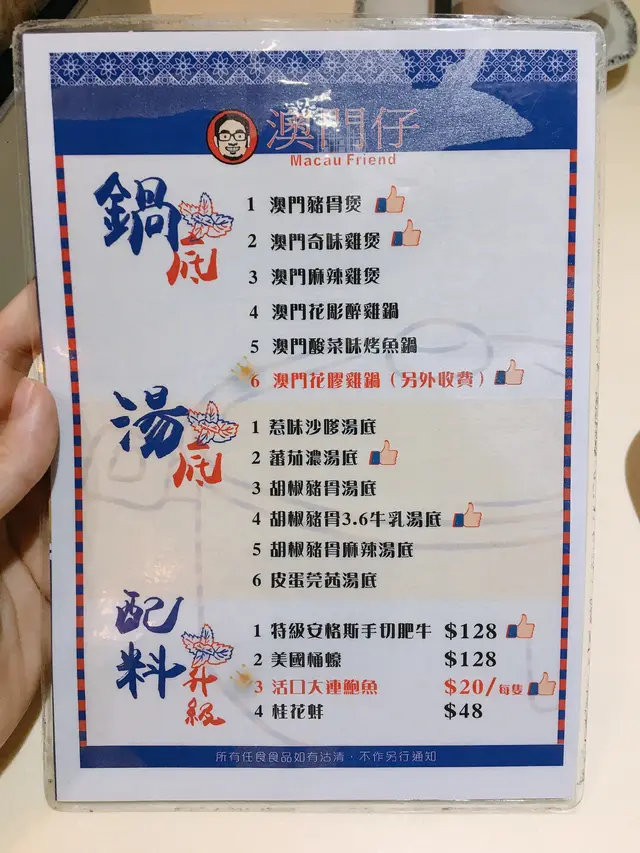 澳門仔
Macau Friend
鍋底
1 澳門豬骨煲
2 澳門奇味雞煲
3 澳門麻辣雞煲
4 澳門花彫醉雞鍋
5 澳門酸菜味烤魚鍋
6 澳門花膠雞鍋（另外收費）
湯底
1 惹味沙嗲湯底
2 蕃茄濃湯底
3 胡椒豬骨湯底
4 胡椒豬骨3.6牛乳湯底
5 胡椒豬骨麻辣湯底
6 皮蛋芫茜湯底
配料升級
1 特級安格斯手切肥牛 $128
2 美國桶蠔 $128
3 活口大連鮑魚 $20/每隻
4 桂花蚌 $48
所有任食食品如有沽清，不作另行通知